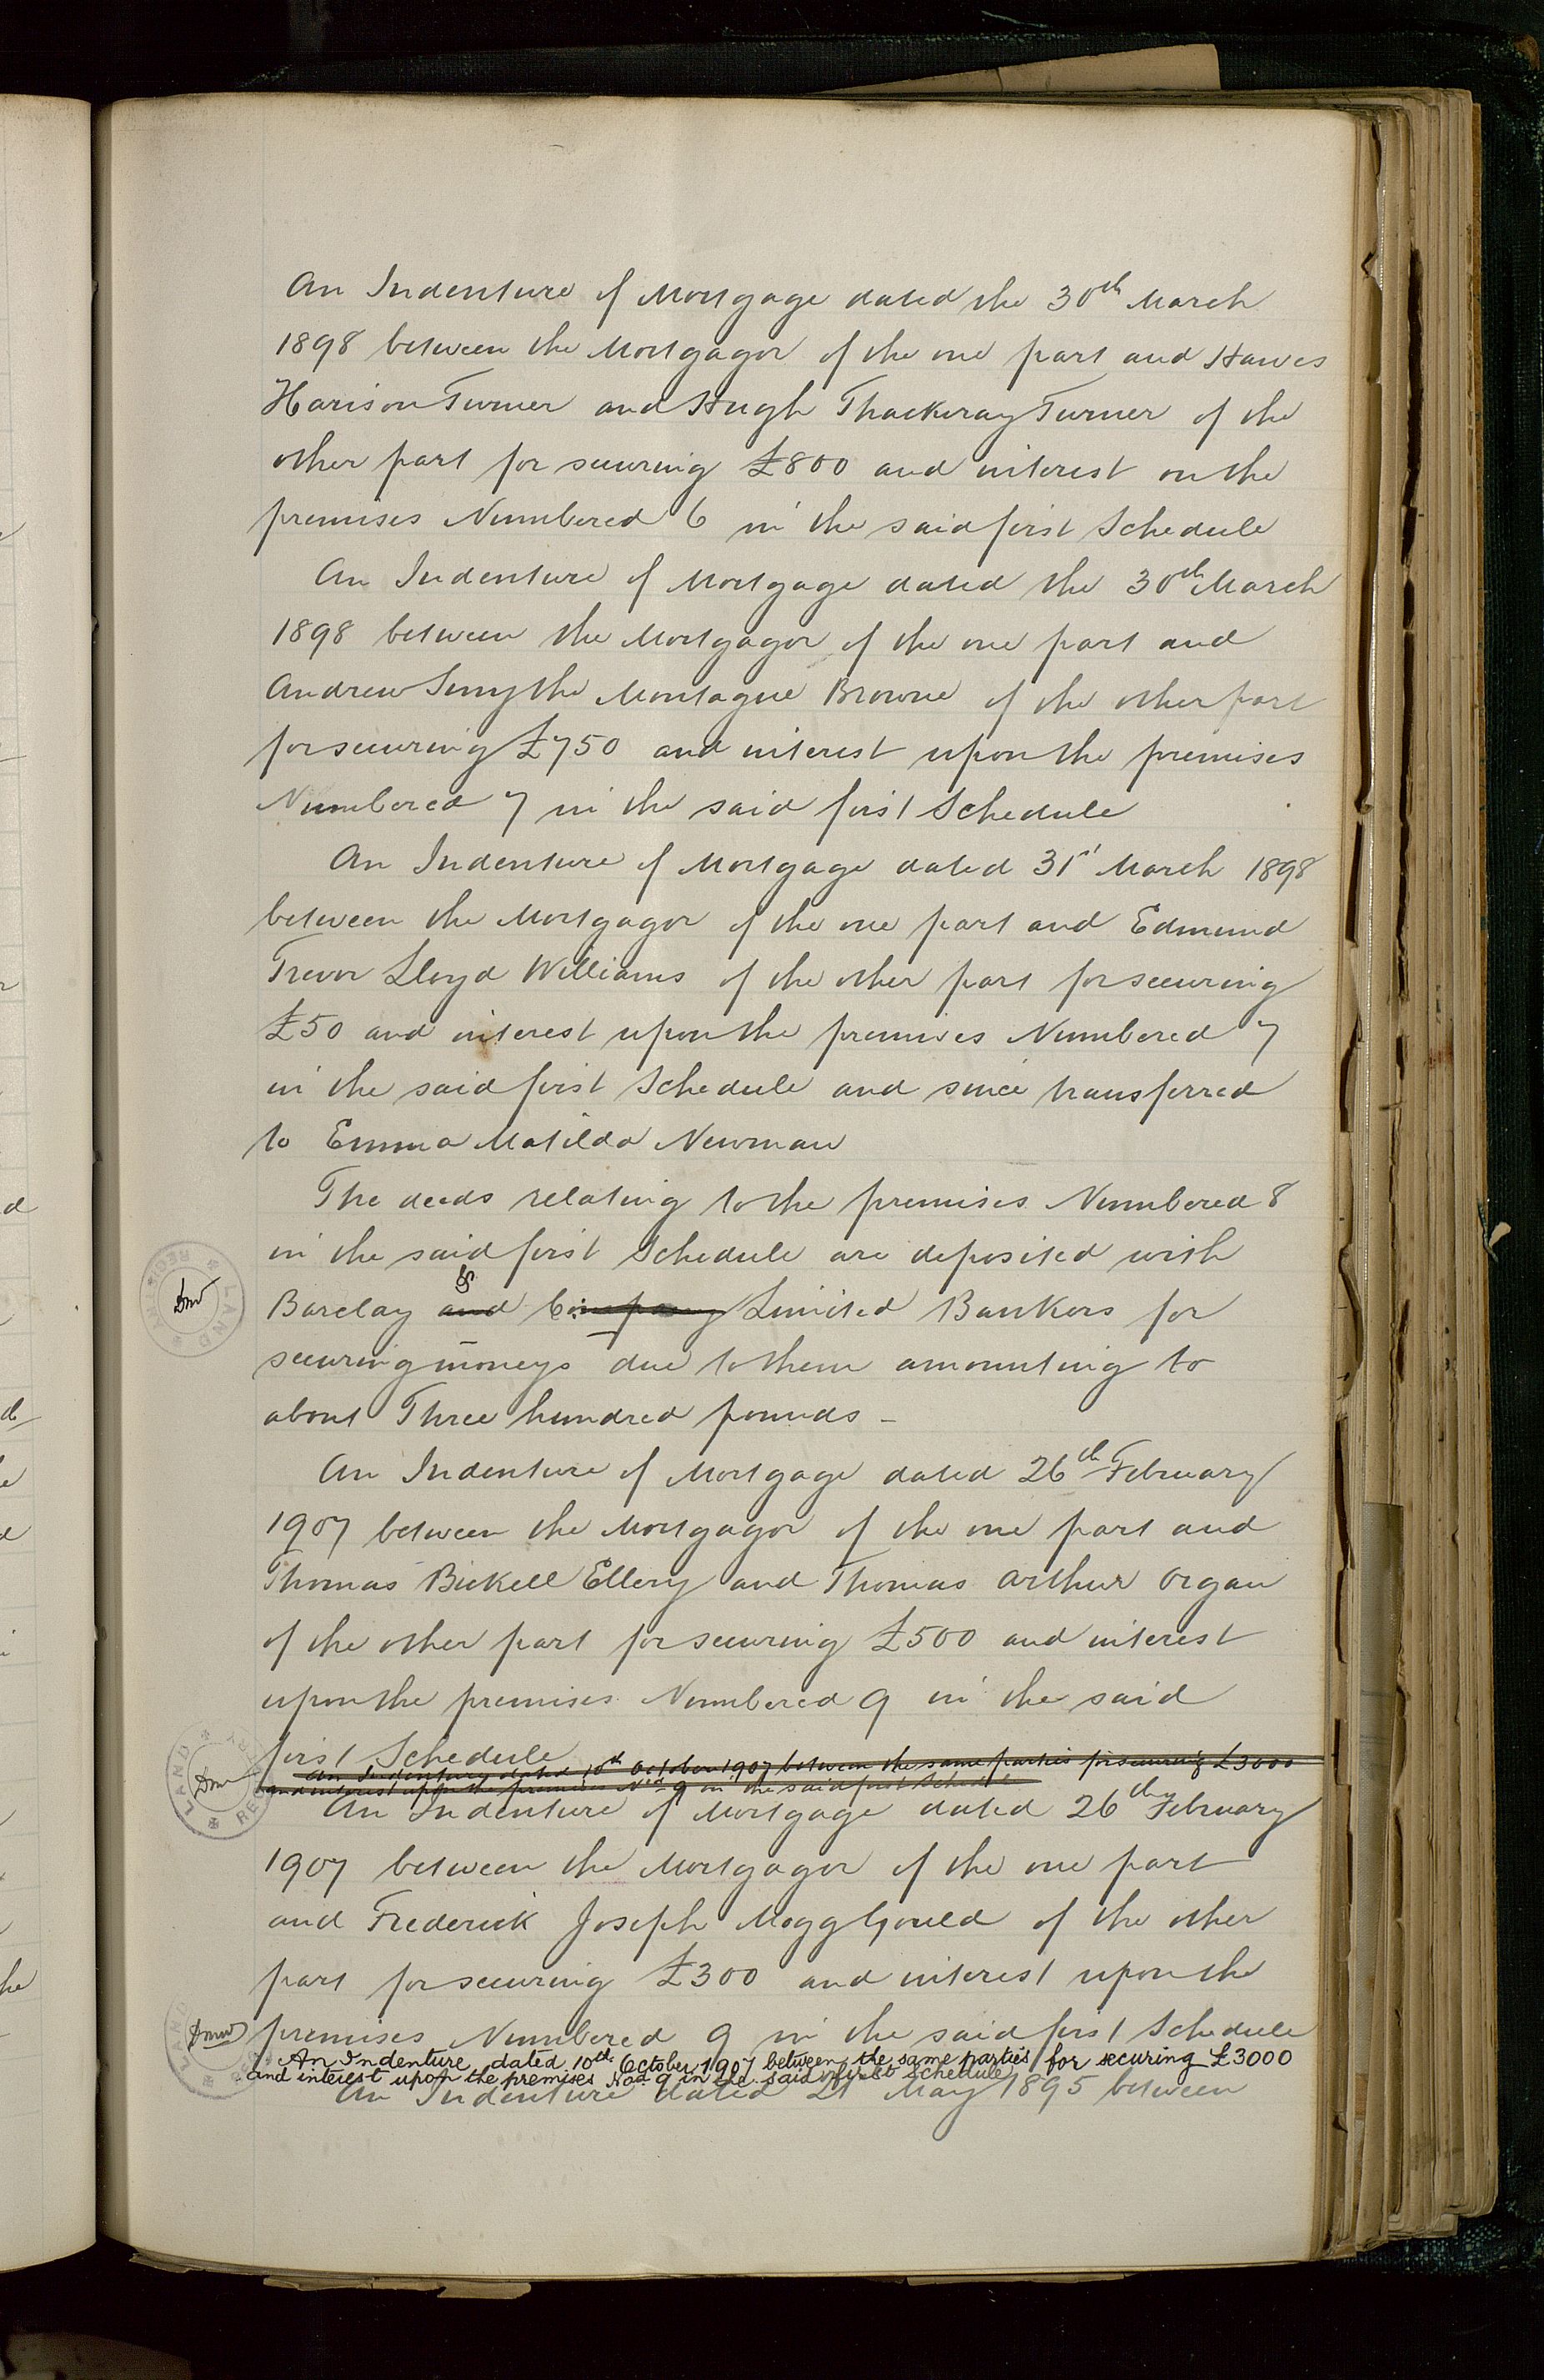 An Indenture of Mortgage dated the 30th March
1898 between the Mortgagor of the one part and Hawes
Harison Turner and Hugh Thackeray Turner of the
other part for securing £800 and interest on the
premises Numbered 6 in the said first Schedule
An Indenture of Mortgage dated the 30th March
1898 between the Mortgagor of the one part and
Andrew Smythe Montague Browne of the other part
for securing £750 and interest upon the premises
Numbered 7 in the said first Schedule
An Indenture of Mortgage dated 31st March 1898
between the Mortgagor of the one part and Edmund
Trevor Lloyd Williams of the other part for securing
£50 and interest upon the premises Numbered 7
in the said first Schedule and since transferred
to Emma Matilda Newman
The deeds relating to the premises Numbered 8
in the said first Schedule are deposited with
Barclay and & Company Limited Bankers for
securing moneys due to them amounting to
about Three hundred pounds -
An Indenture of Mortgage dated 26th February
1907 between the Mortgagor of the one part and
Thomas Bickell Ellery and Thomas Arthur Organ
of the other part for securing £500 and interest
upon the premises Numbered 9 in the said
first Schedule
An Indenture dated 10th October 1907 between the same parties for securing £3000
and interest upon the premises Nod 9 in the said first Schedule
An Indenture of Mortgage dated 26th February
1907 between the Mortgagor of the one part
and Frederick Joseph Mogg Gould of the other
part for securing £300 and interest upon the
premises Numbered 9 in the said first Schedule
An Indenture dated 10th October 1907 between the same parties for securing £3000
and interest upon the premises Nod 9 in the said first Schedule
An Indenture dated 21 May 1895 between
LAND REGISTRY
LAND REGISTRY
LAND